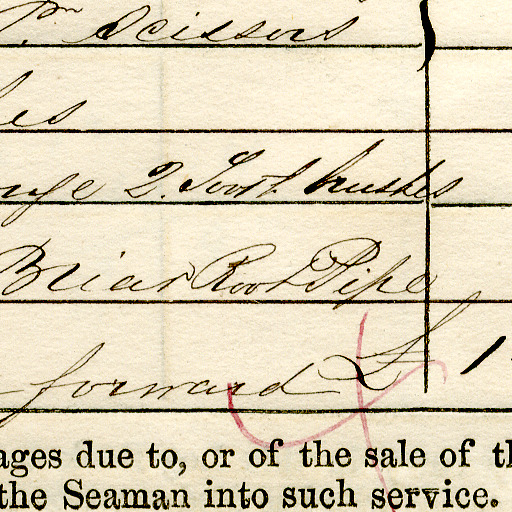 Pr Scissors
es
nge 2. Toot. brushes
Briar Root Pipe
forward £ 1
ages due to, or of the sale of th
the Seaman into such service.